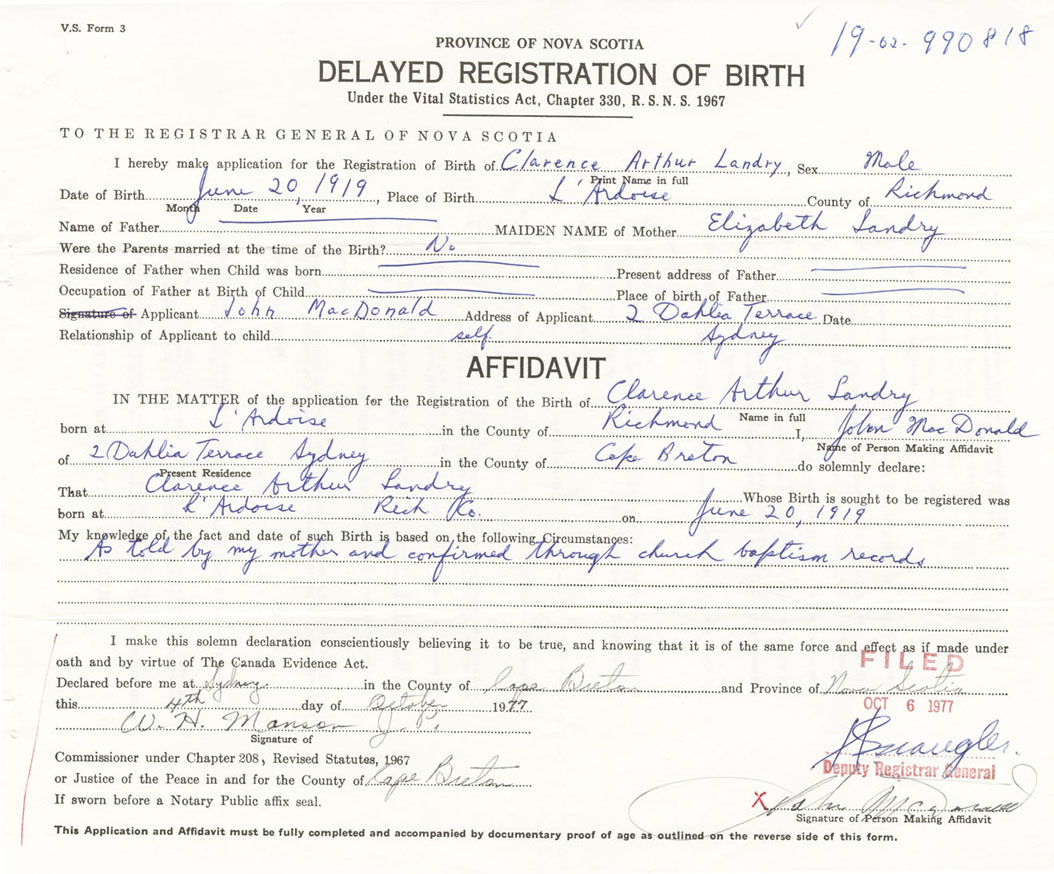 V.S. Form 3
19-02-990818
PROVINCE OF NOVA SCOTIA
DELAYED REGISTRATION OF BIRTH
Under the Vital Statistics Act, Chapter 330, R. S. N. S. 1967
TO THE REGISTRAR GENERAL OF NOVA SCOTIA
I hereby make application for the Registration of Birth of Clarence Arthur Landry, Sex Male
Print Name in full
Date of Birth June 20, 1919, Place of Birth L'Ardoise County of Richmond
Month Date Year
Name of Father MAIDEN NAME of Mother Elizabeth Landry
Were the Parents married at the time of the Birth? No
Residence of Father when Child was born Present address of Father
Occupation of Father at Birth of Child Place of birth of Father
Signature of Applicant John MacDonald Address of Applicant 2 Dahlia Terrace Date
Relationship of Applicant to child self Sydney
AFFIDAVIT
IN THE MATTER of the application for the Registration of the Birth of Clarence Arthur Landry
Name in full
born at L'Ardoise in the County of Richmond I, John MacDonald
Name of Person Making Affidavit
of 2 Dahlia Terrace Sydney in the County of Cape Breton do solemnly declare:
Present Residence
That Clarence Arthur Landry Whose Birth is sought to be registered was
born at L'Ardoise Rich Co. on June 20, 1919
My knowledge of the fact and date of such Birth is based on the following Circumstances:
As told by my mother and confirmed through church baptism records
I make this solemn declaration conscientiously believing it to be true, and knowing that it is of the same force and effect as if made under
oath and by virtue of The Canada Evidence Act.
FILED
Declared before me at Sydney in the County of Cape Breton and Province of Nova Scotia
this 4th day of October 1977
OCT 6 1977
W. H. Manson J.P.
Signature of
Commissioner under Chapter 208, Revised Statutes, 1967
Deputy Registrar General
or Justice of the Peace in and for the County of Cape Breton
If sworn before a Notary Public affix seal.
X John MacDonald
Signature of Person Making Affidavit
This Application and Affidavit must be fully completed and accompanied by documentary proof of age as outlined on the reverse side of this form.